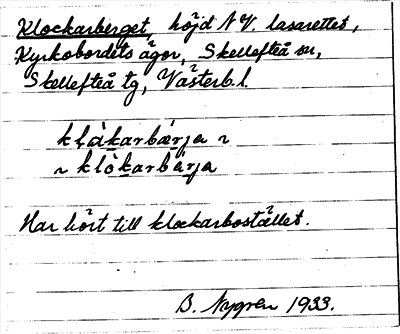 Klockarberget, höjd N V. lasarettet,
Kyrkobordets ägor, Skellefteå sn,
Skellefteå tg, Västerb. l.
klàkarbærja ~
~ klòkarbærja
Har hört till klockarbostället.
B. Nygren 1933.